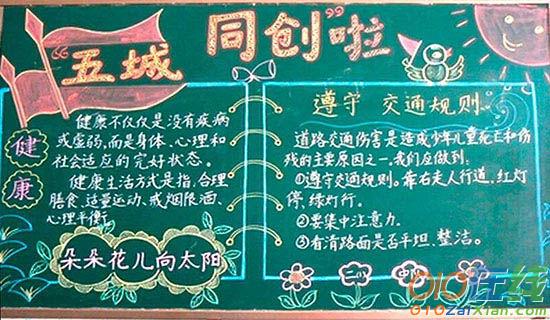 “五城同创”啦
健康
健康不仅仅是没有疾病
或虚弱,而是身体、心理和
社会适应的完好状态。
健康生活方式是指,合理
膳食、适量运动、戒烟限酒、
心理平衡。
朵朵花儿向太阳
遵守 交通规则。
道路交通伤害是造成少年儿童死亡和伤
残的主要原因之一,我们应做到:
①遵守交通规则。靠右走人行道,红灯
停,绿灯行。
②要集中注意力.
③看清路面是否平坦、整洁。
二(1) 中
010在线
010zaixian.com